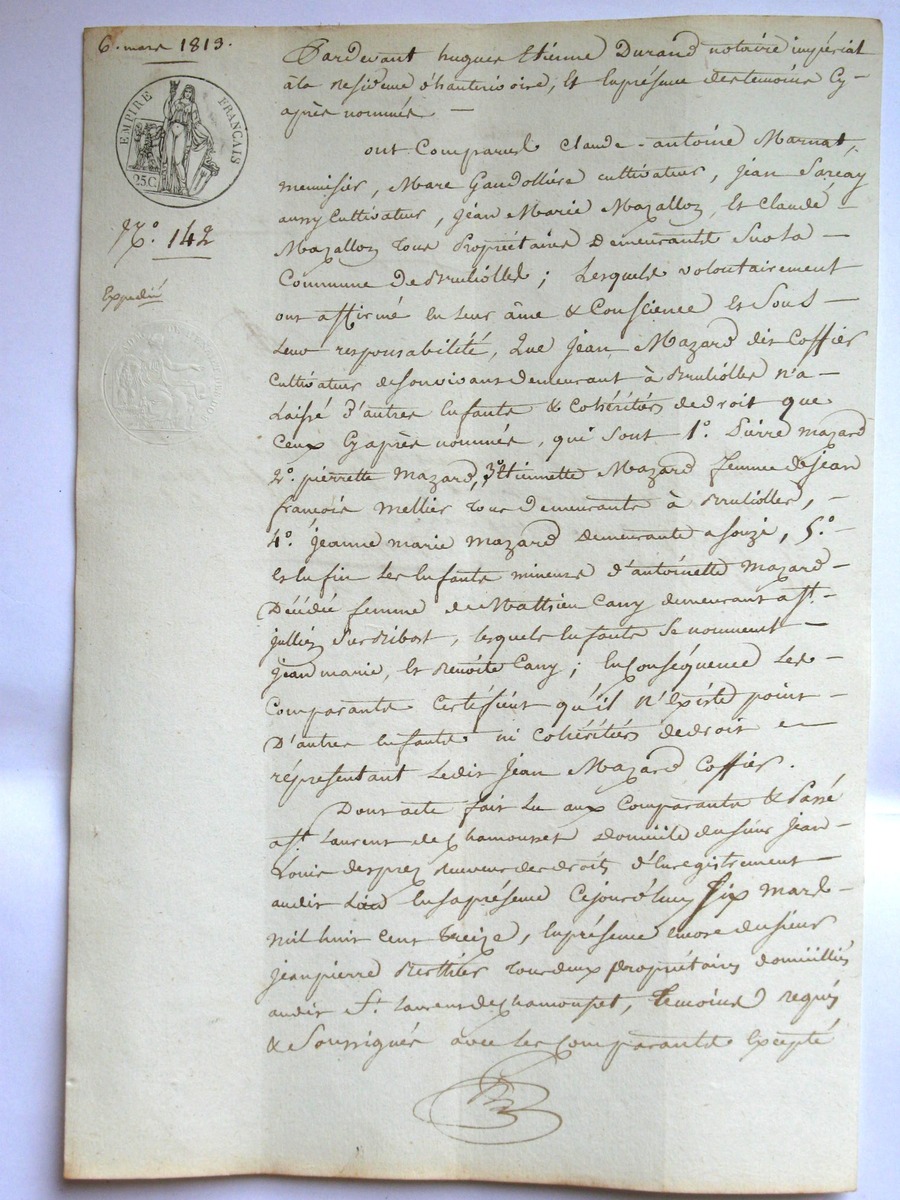 6. mars 1813.
EMPIRE FRANÇAIS
25 C
N.º 142
Expedié
Pardevant hugues Etienne Durand notaire impérial
à la Residence d'hauterivoire, Et Enprésence des temoins Cy-
après nommés —
ont Comparus Claude-antoine Marnat,
menuisier, Marc Gaudollière cultivateur, Jean Sarcay
aussy Cultivateur, Jean Marie Mazallon, Et Claude
Mazallon tous Propriétaires Demeurants Sur la
Commune de Brulliolles; Lesquels volontairement
ont affirmé En Leur âme & Conscience Et Sous
Leur responsabilité, Que Jean Mazard dit Coffier
Cultivateur de Sonvivant demeurant à Bruliolles n'a
Laissé d'autres Enfants & Cohéritiers de droit que
Ceux Cyaprès nommés, qui Sont 1º. Pierre mazard
2º. pierrette Mazard, 3º Etiennette Mazard femme de Jean
françois Mellier tous Demeurants à Brulliolles, —
4º. Jeanne marie Mazard Demeurante a souzi, 5.º —
Et Enfin Les Enfants mineurs d'antoinette Mazard —
Décédée femme de Mathieu Cany demeurant a St.
jullien Sur Bibost, lesquels Enfants Se nomment —
Jean marie, Et Benoite Cany; EnConséquence Les —
Comparants Certifient qu'il n'Existe point —
D'autres Enfants ni Cohéritiers de droit En —
réprésentant Ledit Jean Mazard Coffier.
Dont acte fait Lu aux Comparants & Passé
a St. Laurent de Chamousset domicile du sieur Jean-
Louis desprez Receveur des droits d'Enregistrement —
audit Lieu Ensaprésence Cejourd'huy Six Mars —
mil huit Cent treize, Enprésence Encore du sieur
Jean pierre Berthier tous deux propriétaires domiciliés
audit St. Laurent de Chamousset, temoins requis
& Soussignés avec Les Comparants Excepté